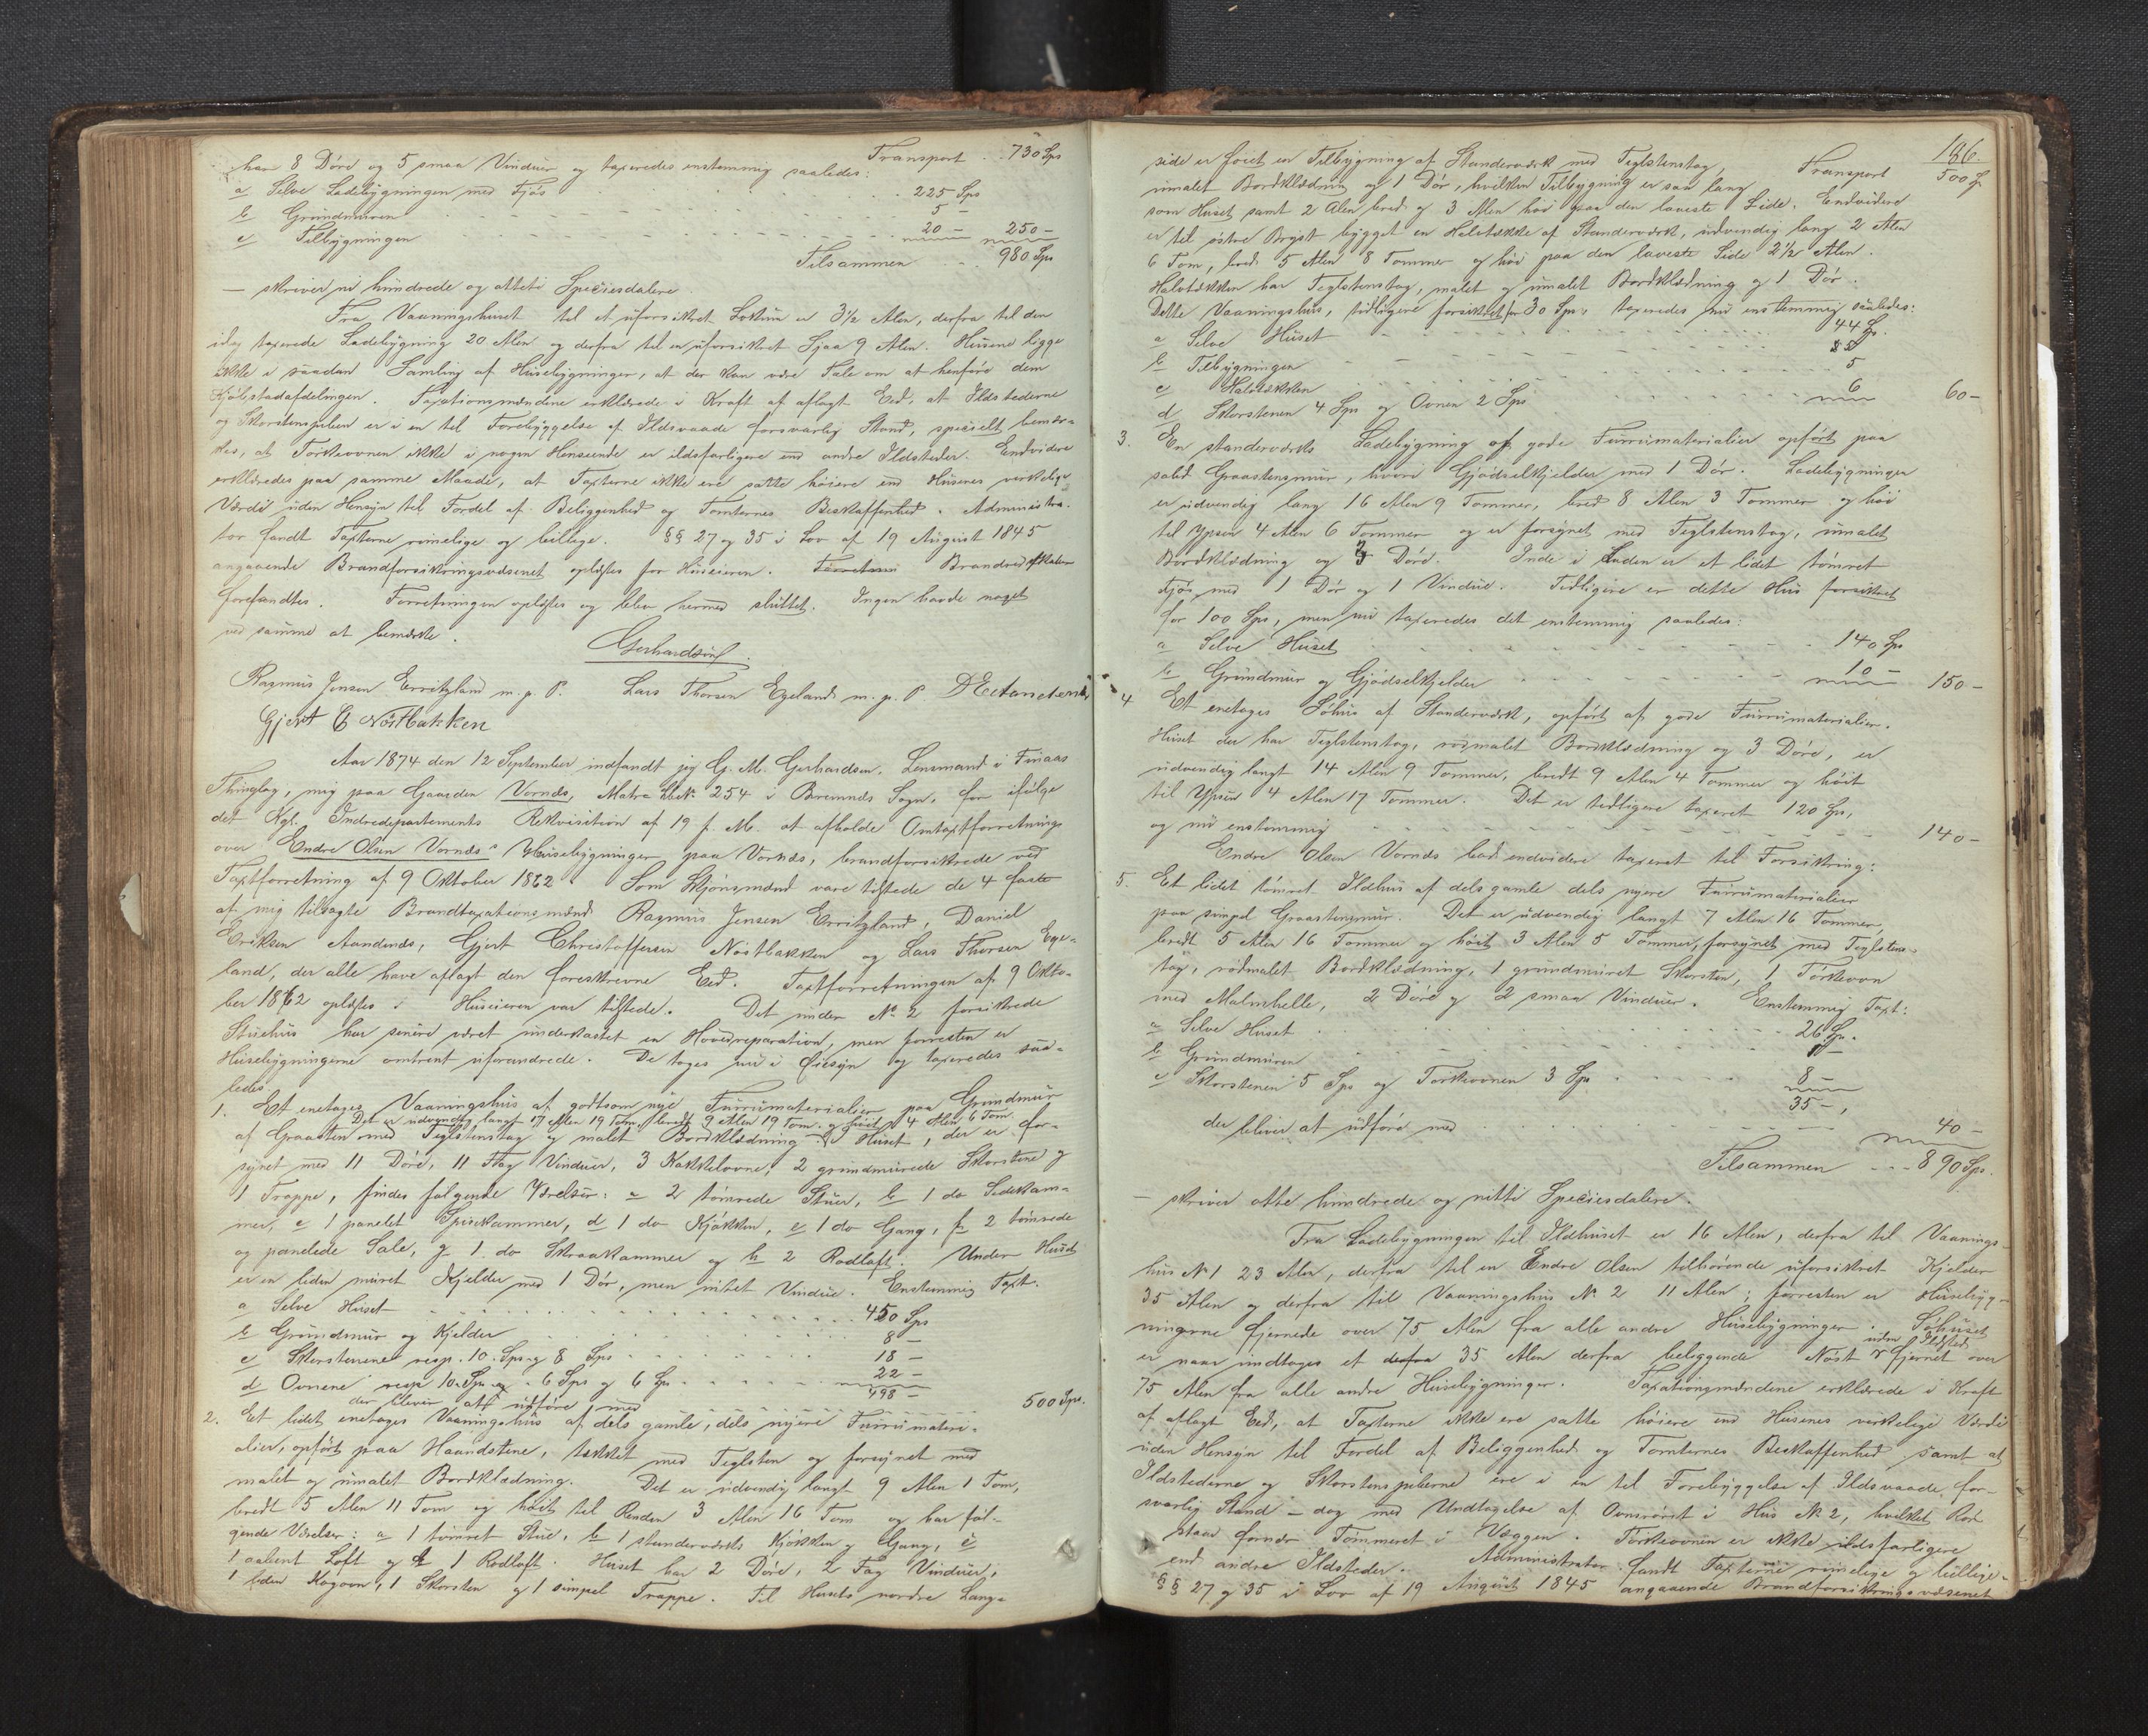 Transport . . 730 Sps
har 8 Döre og 5 smaa Vinduer og taxeredes enstemmig saaledes:
a Selve Ladebygningen med Fjös . . 225 Sps
b Grundmuren 5 -
c Tilbygningen 20 - 250 -
Tilsammen . . 980 Sps
- skriver ni hundrede og otteti Speciesdalere.
Fra Vaaningshuset til et uforsikret Lokum er 3½ Alen, derfra til den
idag taxerede Ladebygning 20 Alen og derfra til en uforsikret Sjaa 9 Alen. Husene ligge
ikke i saadan Samling af Husebygninger, at der kan være Tale om at henføre dem
Kjöbstadafdelingen. Taxationsmændene erklærede i Kraft af aflagt Eed, at Ildstederne
og Skorstenspiben er i en til Forebyggelse af Ildsvaade forsvarlig Stand, specielt bemær-
kes, at Torkeovnen ikke i nogen Henseende er ildsfarligere end andre Ildsteder. Endvidere
erklæredes paa samme Maade, at Taxterne ikke ere satte höiere end Husenes virkelige
Værdi uden Hensyn til Fordel af Beliggenhed og Tomternes Beskaffenhed. Administra-
tor fandt Taxterne rimelige og billige. §§ 27 og 35 i Lov af 19 August 1845
angaaende Brandforsikringsvæsenet oplæstes for Huseieren. Brandredskaber
forefandtes. Forretningen oplæstes og blev hermed sluttet. Ingen havde noget
ved samme at bemærke.
Gerhardsen
Rasmus Jensen Erritzland m. p. P. Lars Thorsen Egeland m. p. P D E Aandenes
Gjert C Nöstbakken
Aar 1874 den 12 September indfandt jeg G. M. Gerhardsen, Lensmand i Finaas
Thinglag, mig paa Gaarden Vornæs, Matr. Lb.No 254 i Bremnæs Sogn, for ifölge
det Kgl. Indredepartements Rekvisition af 19 f. M. at afholde Omtaxtforretning
over Endre Olsen Vornæs' Husebygninger paa Vornæs, brandforsikrede ved
Taxtforretning af 9 Oktober 1862. Som Skjönsmænd vare tilstede de 4 faste
af mig tilsagte Brandtaxationsmænd Rasmus Jensen Erritzland, Daniel
Eriksen Aandenæs, Gjert Christoffersen Nöstbakken og Lars Thorsen Ege-
land, der alle have aflagt den foreskrevne Eed. Taxtforretningen af 9 Okto-
ber 1862 oplæstes. Huseieren var tilstede. Det under No 2 forsikrede
Stuehus har senere været underkastet en Hovedreparation, men forresten er
Husebygningerne omtrent uforandrede. De toges nu i Öiesyn og taxeredes saa-
ledes:
1. Et enetages Vaaningshus af godtsom nye Furumaterialier paa Grundmur
Det er udvendig langt 17 Alen 19 Tom. bredt 9 Alen 19 Tom. og höit 4 Alen 6 Tom.
af Graasten med Teglstenstag og malet Bordklædning. I Huset, der er for-
synet med 11 Döre, 11 Fag Vinduer, 3 Kakkelovne, 2 grundmurede Skorstene og
1 Trappe, findes fölgende Værelser: a 2 tömrede Stuer, b 1 do Sidekam-
mer, c 1 panelet Spisekammer, d 1 do Kjökken, e 1 do Gang, f 2 tömrede
og panelede Sale, g 1 do Skraakammer og h 2 Rodloft. Under Huset
er en liden muret Kjelder med 1 Dör, men intet Vindue. Enstemmig Taxt.
a Selve Huset 450 Sps
b Grundmur og Kjelder 8 -
c Skorstenene resp. 10 Sps og 8 Sps 18 -
d Ovnene resp 10 Sps 6 Sps og 6 Sps 22 -
498 -
der bliver at udföre med 500 Sps.
2. Et lidet enetages Vaaningshus af dels gamle, dels nyere Furumateri-
alier, opfört paa Haandstene, tækket med Teglsten og forsynet med
malet og umalet Bordklædning. Det er udvendig langt 9 Alen 1 Tom,
bredt 5 Alen 11 Tom og höit til Renden 3 Alen 16 Tom og har föl-
gende Værelser: a 1 tömret Stue, b 1 standerværks Kjökken og Gang, c
1 aabent Loft og d 1 Rodloft. Huset har 2 Döre, 2 Fag Vinduer,
1 liden Kogovn, 1 Skorsten og 1 simpel Trappe. Til Husets nordre Lang-
186.
Transport 500 Sps
side er föiet en Tilbygning af Standerværk med Teglstenstag,
umalet Bordklædning og 1 Dör, hvilken Tilbygning er saa lang
som Huset samt 2 Alen bred og 3 Alen höi paa den laveste Side. Endvidere
er til östre Bryst bygget en Halvtække af Standerværk, udvendig lang 2 Alen
6 Tom, bred 5 Alen 8 Tommer og höi paa den laveste Side 2½ Alen.
Halvtækken har Teglstenstag, malet og umalet Bordklædning og 1 Dör.
Dette Vaaningshus, tidligere forsikret for 30 Sps, taxeredes nu enstemmig saaledes:
a Selve Huset 44 Sps.
b Tilbygningen 5
c Halvtækken 5
d Skorstenen 4 Sps og Ovnen 2 Sps 6 60 -
3. En standerværks Ladebygning af gode Furumaterialier opfört paa
solid Graastensmur, hvori Gjödselkjelder med 1 Dör. Ladebygningen
er udvendig lang 16 Alen 9 Tommer, bred 8 Alen 3 Tommer og höi
til Ypsen 4 Alen 6 Tommer og er forsynet med Teglstenstag, umalet
Bordklædning og 3 Döre. Inde i Laden er et lidet tömret
Fjös med 1 Dör og 1 Vindue. Tidligere er dette Hus forsikret
for 100 Sps, men nu taxeredes det enstemmig saaledes:
a Selve Huset 140 Sps
b Grundmur og Gjödselkjelder 10 - 150 -
4 Et enetages Söhus af Standerværk, opfört af gode Furumaterialier.
Huset der har Teglstenstag, rödmalet Bordklædning og 3 Döre, er
udvendig langt 14 Alen 9 Tommer, bredt 9 Alen 4 Tommer og höit
til Ypsen 4 Alen 17 Tommer. Det er tidligere taxeret 120 Sps,
og nu enstemmig 140 -
Endre Olsen Vornæs bad endvidere taxeret til Forsikring:
5. Et lidet tömret Ildhus af dels gamle dels nyere Furumaterialier
paa simpel Graastensmur. Det er udvendig langt 7 Alen 16 Tommer,
bredt 5 Alen 16 Tommer og höit 3 Alen 5 Tommer, forsynet med Teglstens-
tag, rödmalet Bordklædning, 1 grundmuret Skorsten, 1 Törkeovn
med Malmhelle, 2 Döre og 2 smaa Vinduer. Enstemmig Taxt:
a Selve Huset 26 Sps.
b Grundmuren 1 -
c Skorstenen 5 Sps og Torkeovnen 3 Sps 8 -
35 -,
der bliver at udföre med 40 -
Tilsammen - - - 890 Sps.
- skriver otte hundrede og nitti Speciesdalere.
Fra Ladebygningen til Ildhuset er 16 Alen, derfra til Vaanings-
hus No 1 23 Alen, derfra til en Endre Olsen tilhörende uforsikret Kjelder
35 Alen og derfra til Vaaningshus No 2 11 Alen; forresten er Husebyg-
ningerne fjernede over 75 Alen fra alle andre Husebygninger. Söhuset
uden Ildsted
er naar undtages et derfra 35 Alen derfra beliggende Nöst fjernet over
75 Alen fra alle andre Husebygninger. Taxationsmændene erklærede i Kraft
af aflagt Eed, at Taxterne ikke ere satte höiere end Husenes virkelige Værdi
uden Hensyn til Fordel af Beliggenhed og Tomternes Beskaffenhed samt at
Ildstederne og Skorstenspiberne ere i en til Forebyggelse af Ildsvaade for-
svarlig Stand - dog med Undtagelse af Ovnsröret i Hus No 2, hvilket Rör
staar for nær Tömmeret i Væggen. Torkeovnen er ikke ildsfarligere
end andre Ildsteder. Administrator fandt Taxterne rimelige og billige.
§§ 27 og 35 i Lov af 19 August 1845 angaaende Brandforsikringsvæsenet